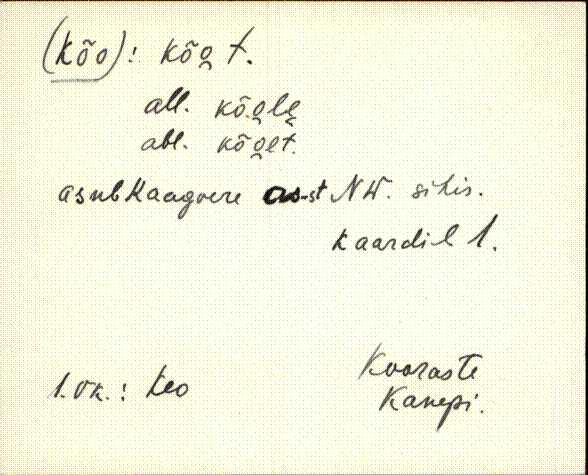 (kõo): kõo̭ t.
all. kõo̭lẹ
abl. kõo̭lt.
asub Kaagvere as-st NW. sihis.
kaardil 1.
1. vk.: keo
Kooraste
Kanepi.